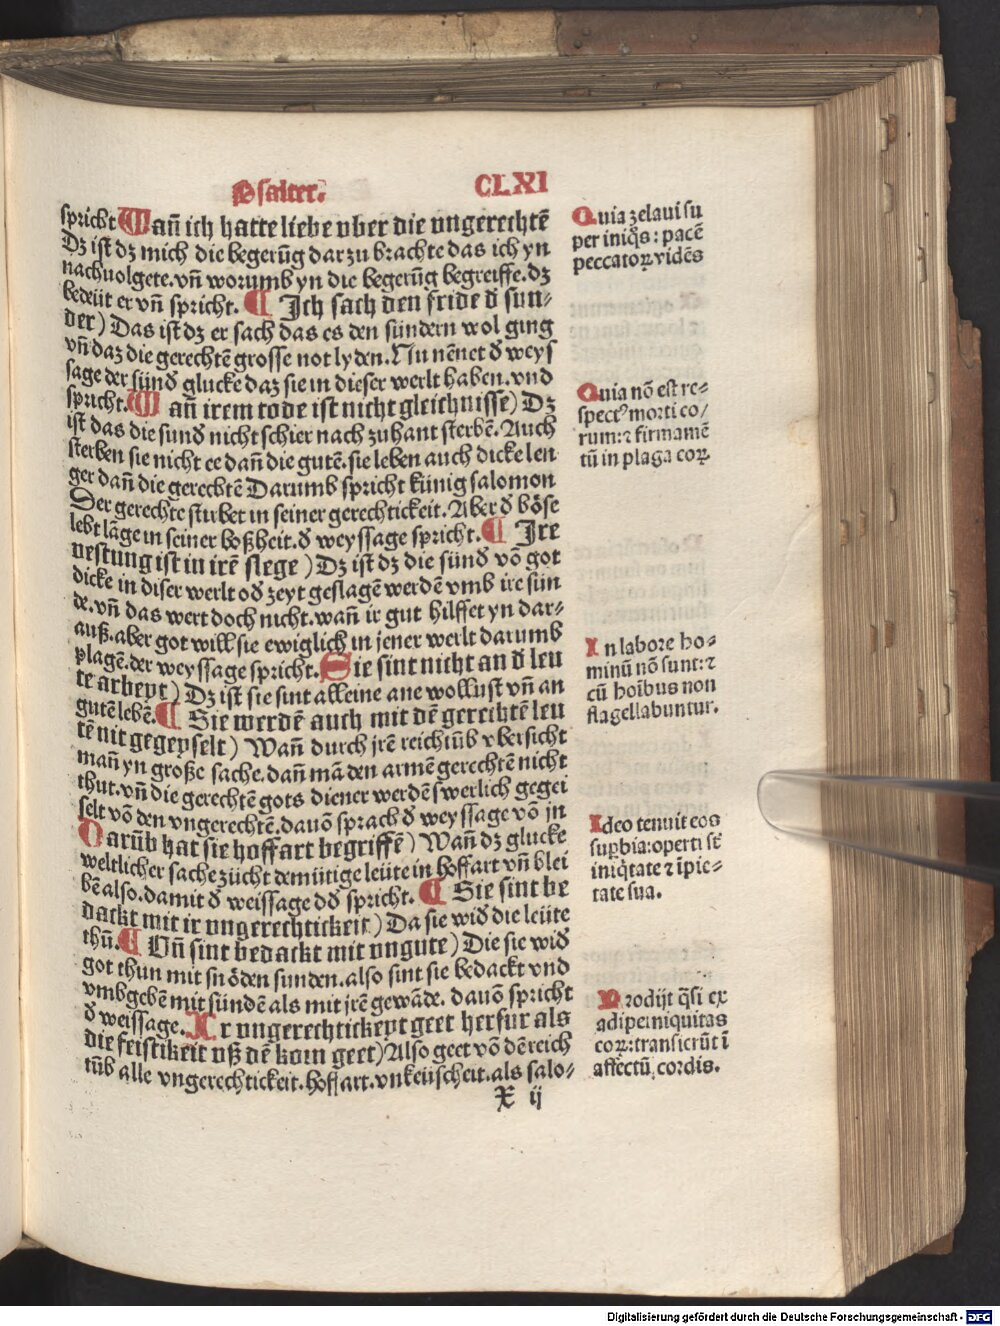 Psalter. CLXI
spricht Wañ ich hatte liebe vber die vngerechtē
Dz ist dz mich die begerūg dar zu brachte das ich yn
nachuolgete. vñ worumb yn die begerūg begreiffe. dz
bedeüt er vñ spricht. ¶ Ich sach den fride đ sun-
der) Das ist dz er sach das es den sündern wol ging
vñ daz die gerechtē grosse not lyden. Nu nēnet đ weys
sage der sünđ glucke daz sie in dieser werlt haben. vnd
spricht. Wañ irem tode ist nicht gleichnisse) Dz
ist das die sunđ nicht schier nach zuhant sterbē. Auch
sterben sie nicht ee dañ die gutē. sie leben auch dicke len
ger dañ die gerechtē Darumb spricht künig salomon
Der gerechte stirbet in seiner gerechtickeit. Aber đ böse
lebt lāge in seiner boßheit. đ weyssage spricht. ¶ Ire
vestung ist in irē slege) Dz ist dz die sünđ vō got
dicke in diser werlt ođ zeyt geslagē werdē vmb ire sün
de. vñ das wert doch nicht. wañ ir gut hilffet yn dar-
auß. aber got will sie ewiglich in jener werlt darumb
plagē. der weyssage spricht. Sie sint nicht an đ leu
te arbeyt) Dz ist sie sint alleine ane wollust vñ an
gutē lebē. ¶ Sie werdē auch mit dē gerechtē leu
tē nit gegeyselt) Wañ durch jrē reichtūb vbersicht
mañ yn große sache. dañ mā den armē gerechtē nicht
thut. vñ die gerechtē gots diener werdē swerlich gegei
selt vō den vngerechtē. dauō sprach đ weyssage vō jn
Darūb hat sie hoffart begriffē) Wañ dz glucke
weltlicher sache zücht demütige leüte in hoffart vñ blei
bē also. damit đ weissage dđ spricht. ¶ Sie sint be
dackt mit ir vngerechtickeit) Da sie wiđ die leüte
thū. ¶ Vñ sint bedackt mit vngute) Die sie wiđ
got thun mit snöden sunden. also sint sie bedackt vnd
vmbgebē mit sündē als mit jrē gewāde. dauō spricht
đ weissage. Ir vngerechtickeyt geet herfur als
die feistikeit vß dē korn geet) Also geet vō dē reich
tūb alle vngerechtickeit. hoffart. vnkeüscheit. als salo-
X ij
Quia zelaui su
per iniq̄s: pacē
peccatoꝝ vidēs
Quia nō est re-
spectꝰ morti eo/
rum: ⁊ firmamē
tū in plaga eoꝝ.
In labore ho-
minū nō sunt: ⁊
cū hoībus non
flagellabuntur.
Ideo tenuit eos
supbia: operti st̄
iniq̄tate ⁊ īpie-
tate sua.
Prodijt q̄si ex
adipe iniquitas
eoꝝ: transierūt ī
affectū cordis.
Digitalisierung gefördert durch die Deutsche Forschungsgemeinschaft - DFG